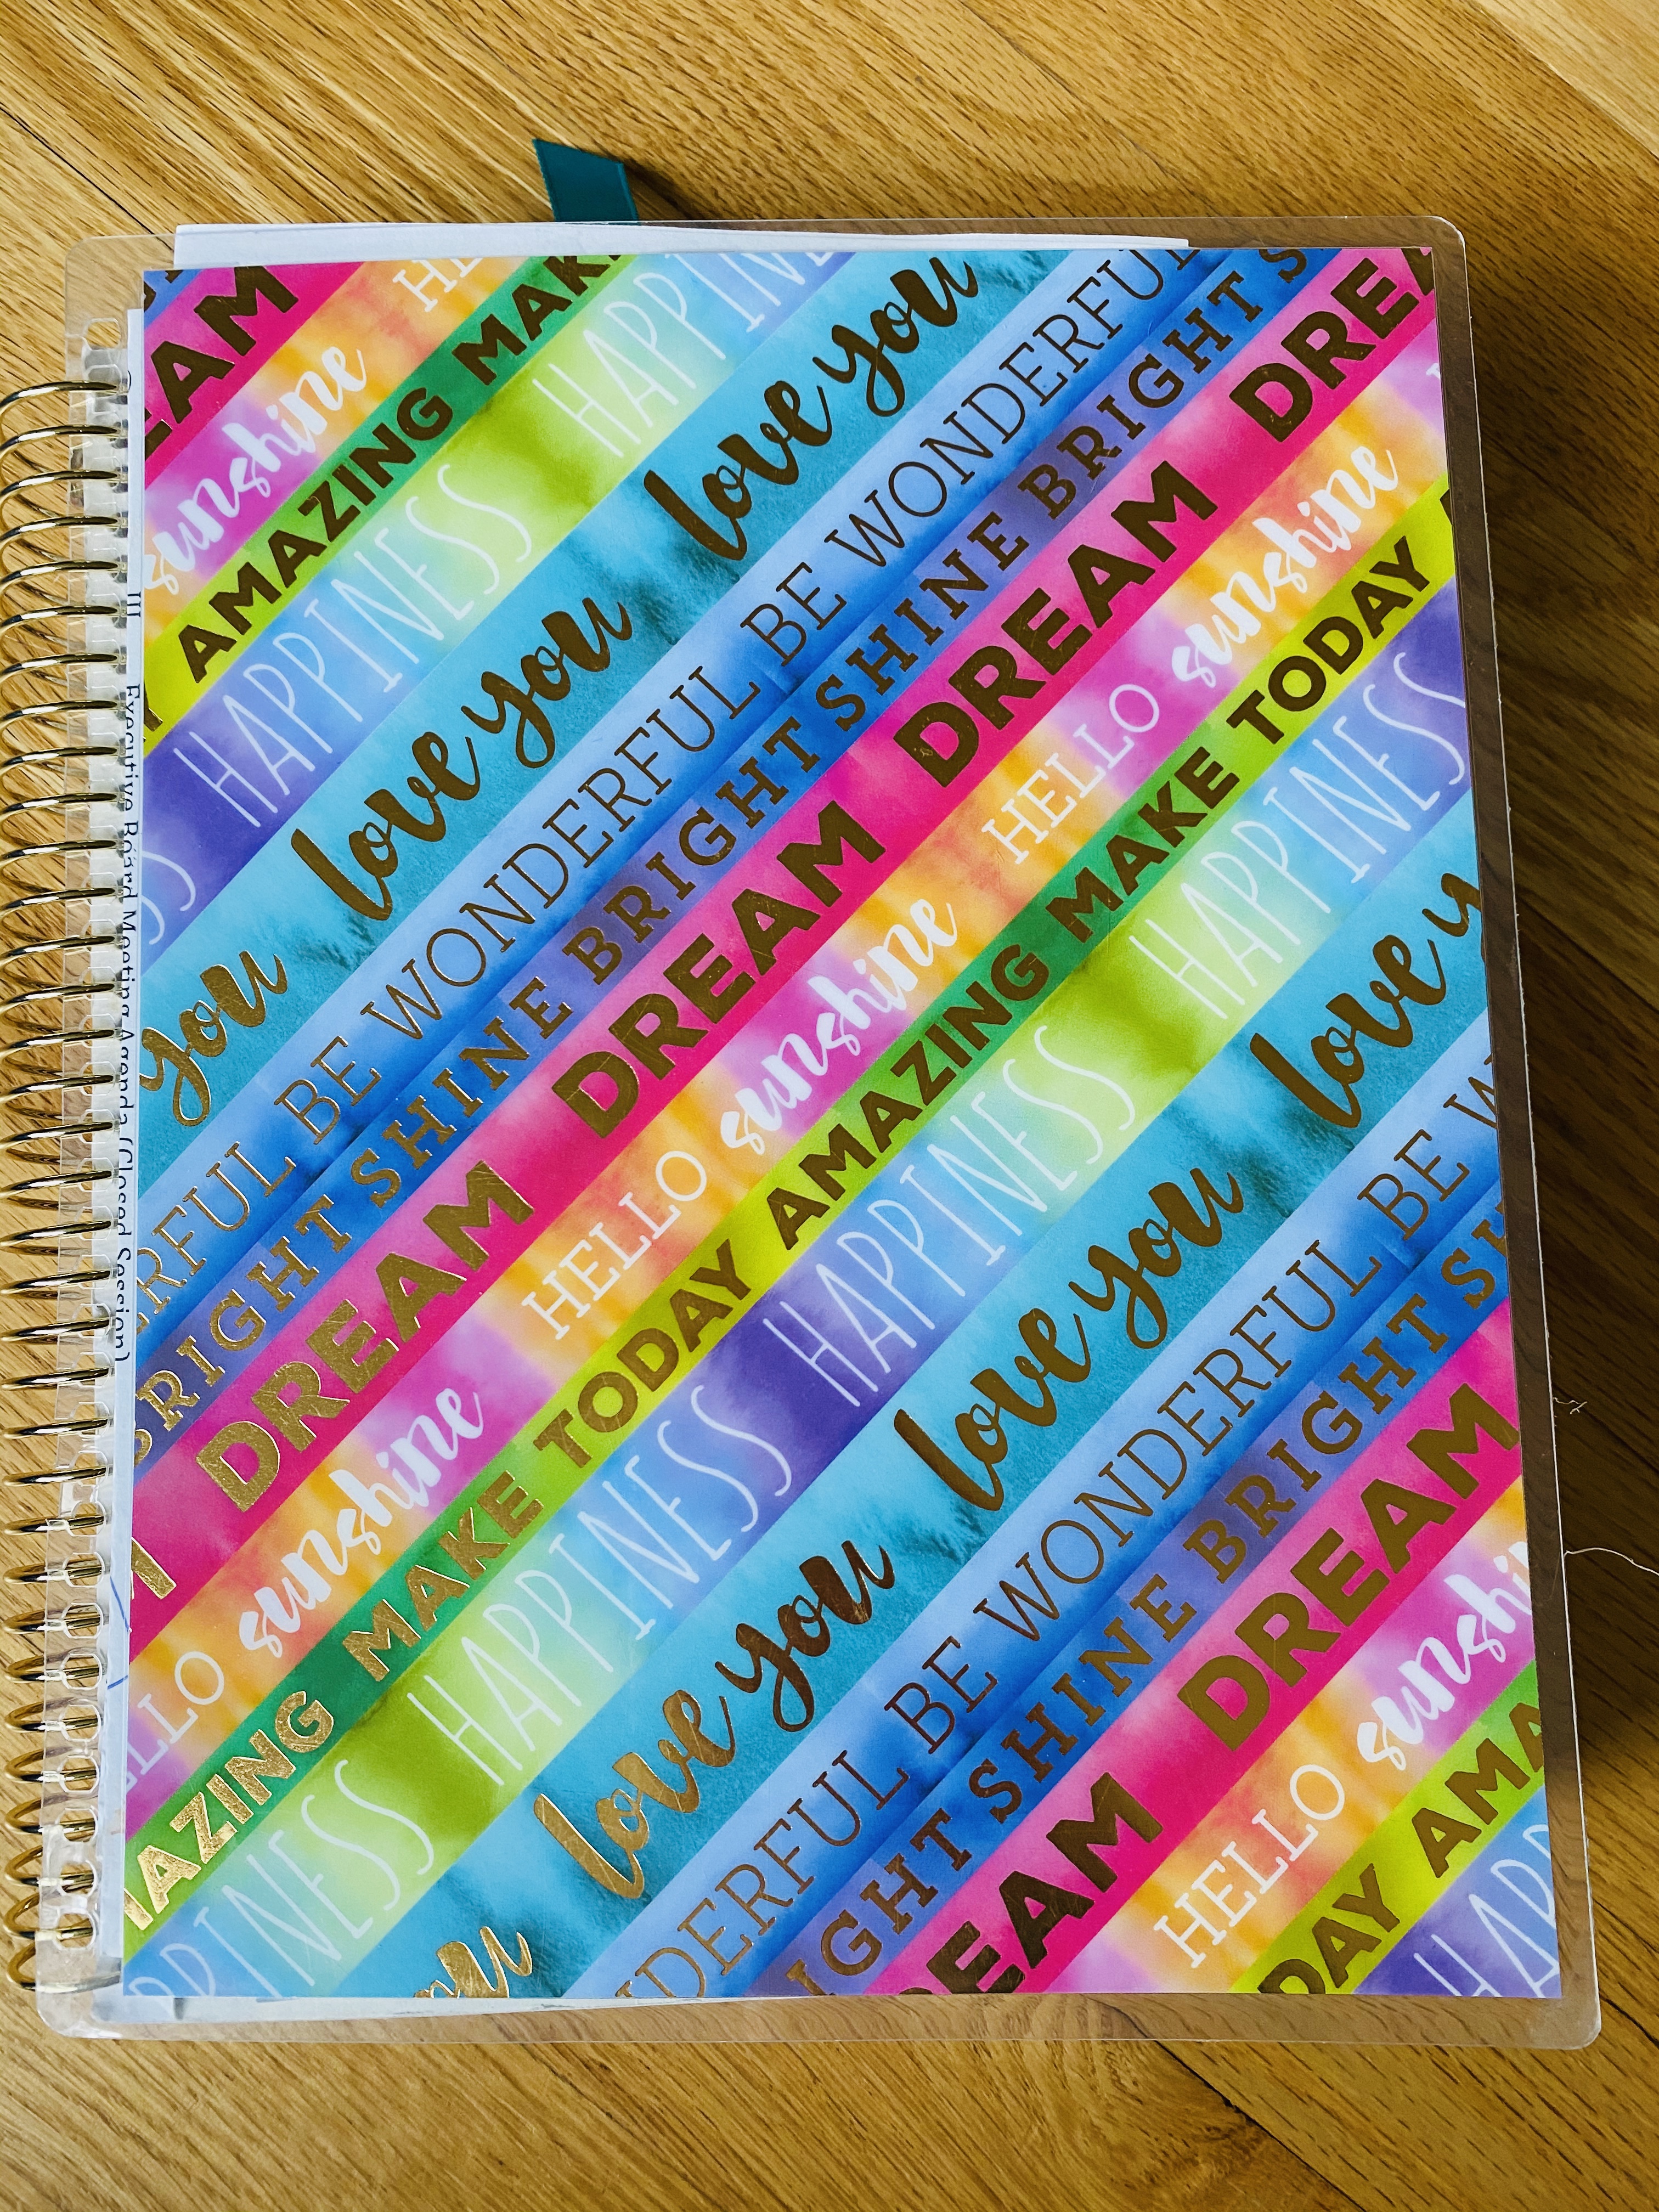 DREAM
HELLO sunshine
MAKE TODAY AMAZING MAKE
HAPPINESS HAPPINESS HAPPINESS
love you love you love you
BE WONDERFUL BE WONDERFUL BE WONDERFUL
SHINE BRIGHT SHINE BRIGHT SHINE BRIGHT S
DREAM DREAM DREAM DREAM DREAM
HELLO sunshine HELLO sunshine HELLO sunshine
AMAZING MAKE TODAY AMAZING MAKE TODAY
HAPPINESS HAPPINESS HAPPINESS HAPPINESS
you love you love you love y
WONDERFUL BE WONDERFUL BE W
BRIGHT SHINE BRIGHT SH
DREAM DREAM
HELLO sunshine
TODAY AMA
HAPP
III Executive Board Meeting Agenda (Closed Session)